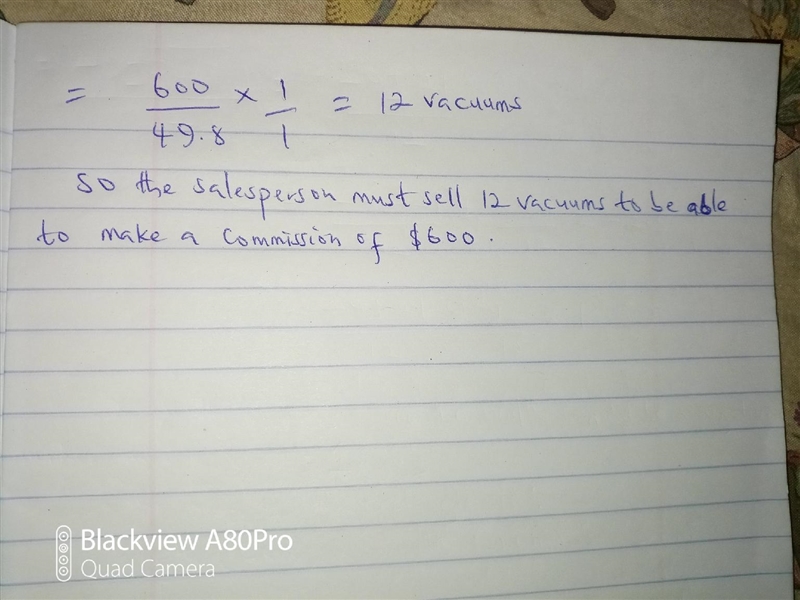 = 600/49.8 × 1/1 = 12 vacuums
So the salesperson must sell 12 vacuums to be able
to make a commission of $600.
Blackview A80Pro
Quad Camera